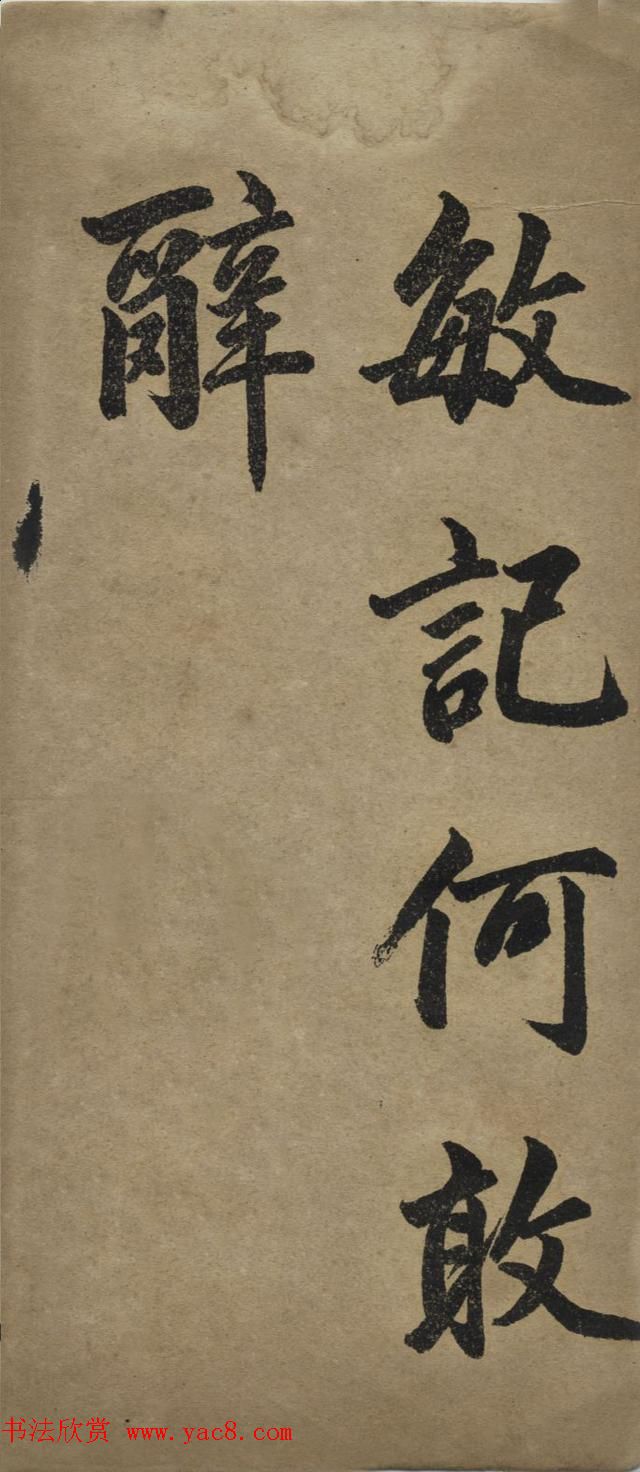 敏記何敢
辭
书法欣赏 www.yac8.com